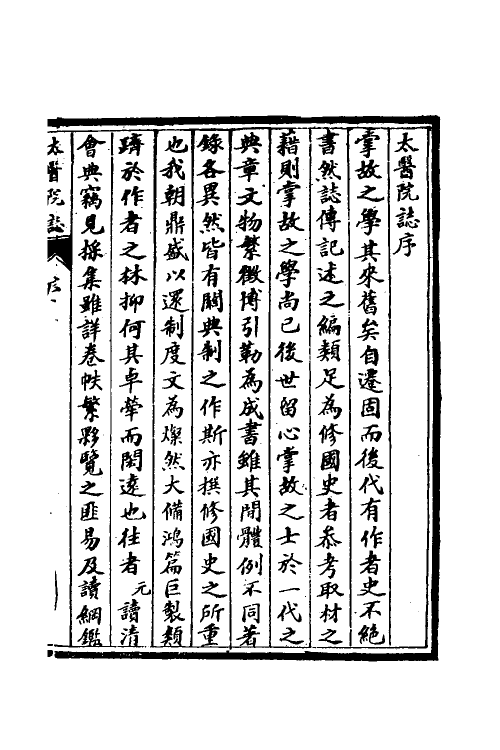 太醫院誌序
掌故之學其來舊矣自遷固而後代有作者史不絕
書然誌傳記述之編類足為修國史者叅考取材之
藉則掌故之學尚已後世留心掌故之士於一代之
典章文物繁徵博引勒為成書雖其間體例不同著
錄各異然皆有關典制之作斯亦撰修國史之所重
也我朝鼎盛以還制度文為燦然大備鴻篇巨製類
躋於作者之林抑何其卓犖而閎遠也往者元讀清
會典竊見採集雖詳卷帙繁夥覽之匪易及讀綱鑑
太醫院誌 序 一